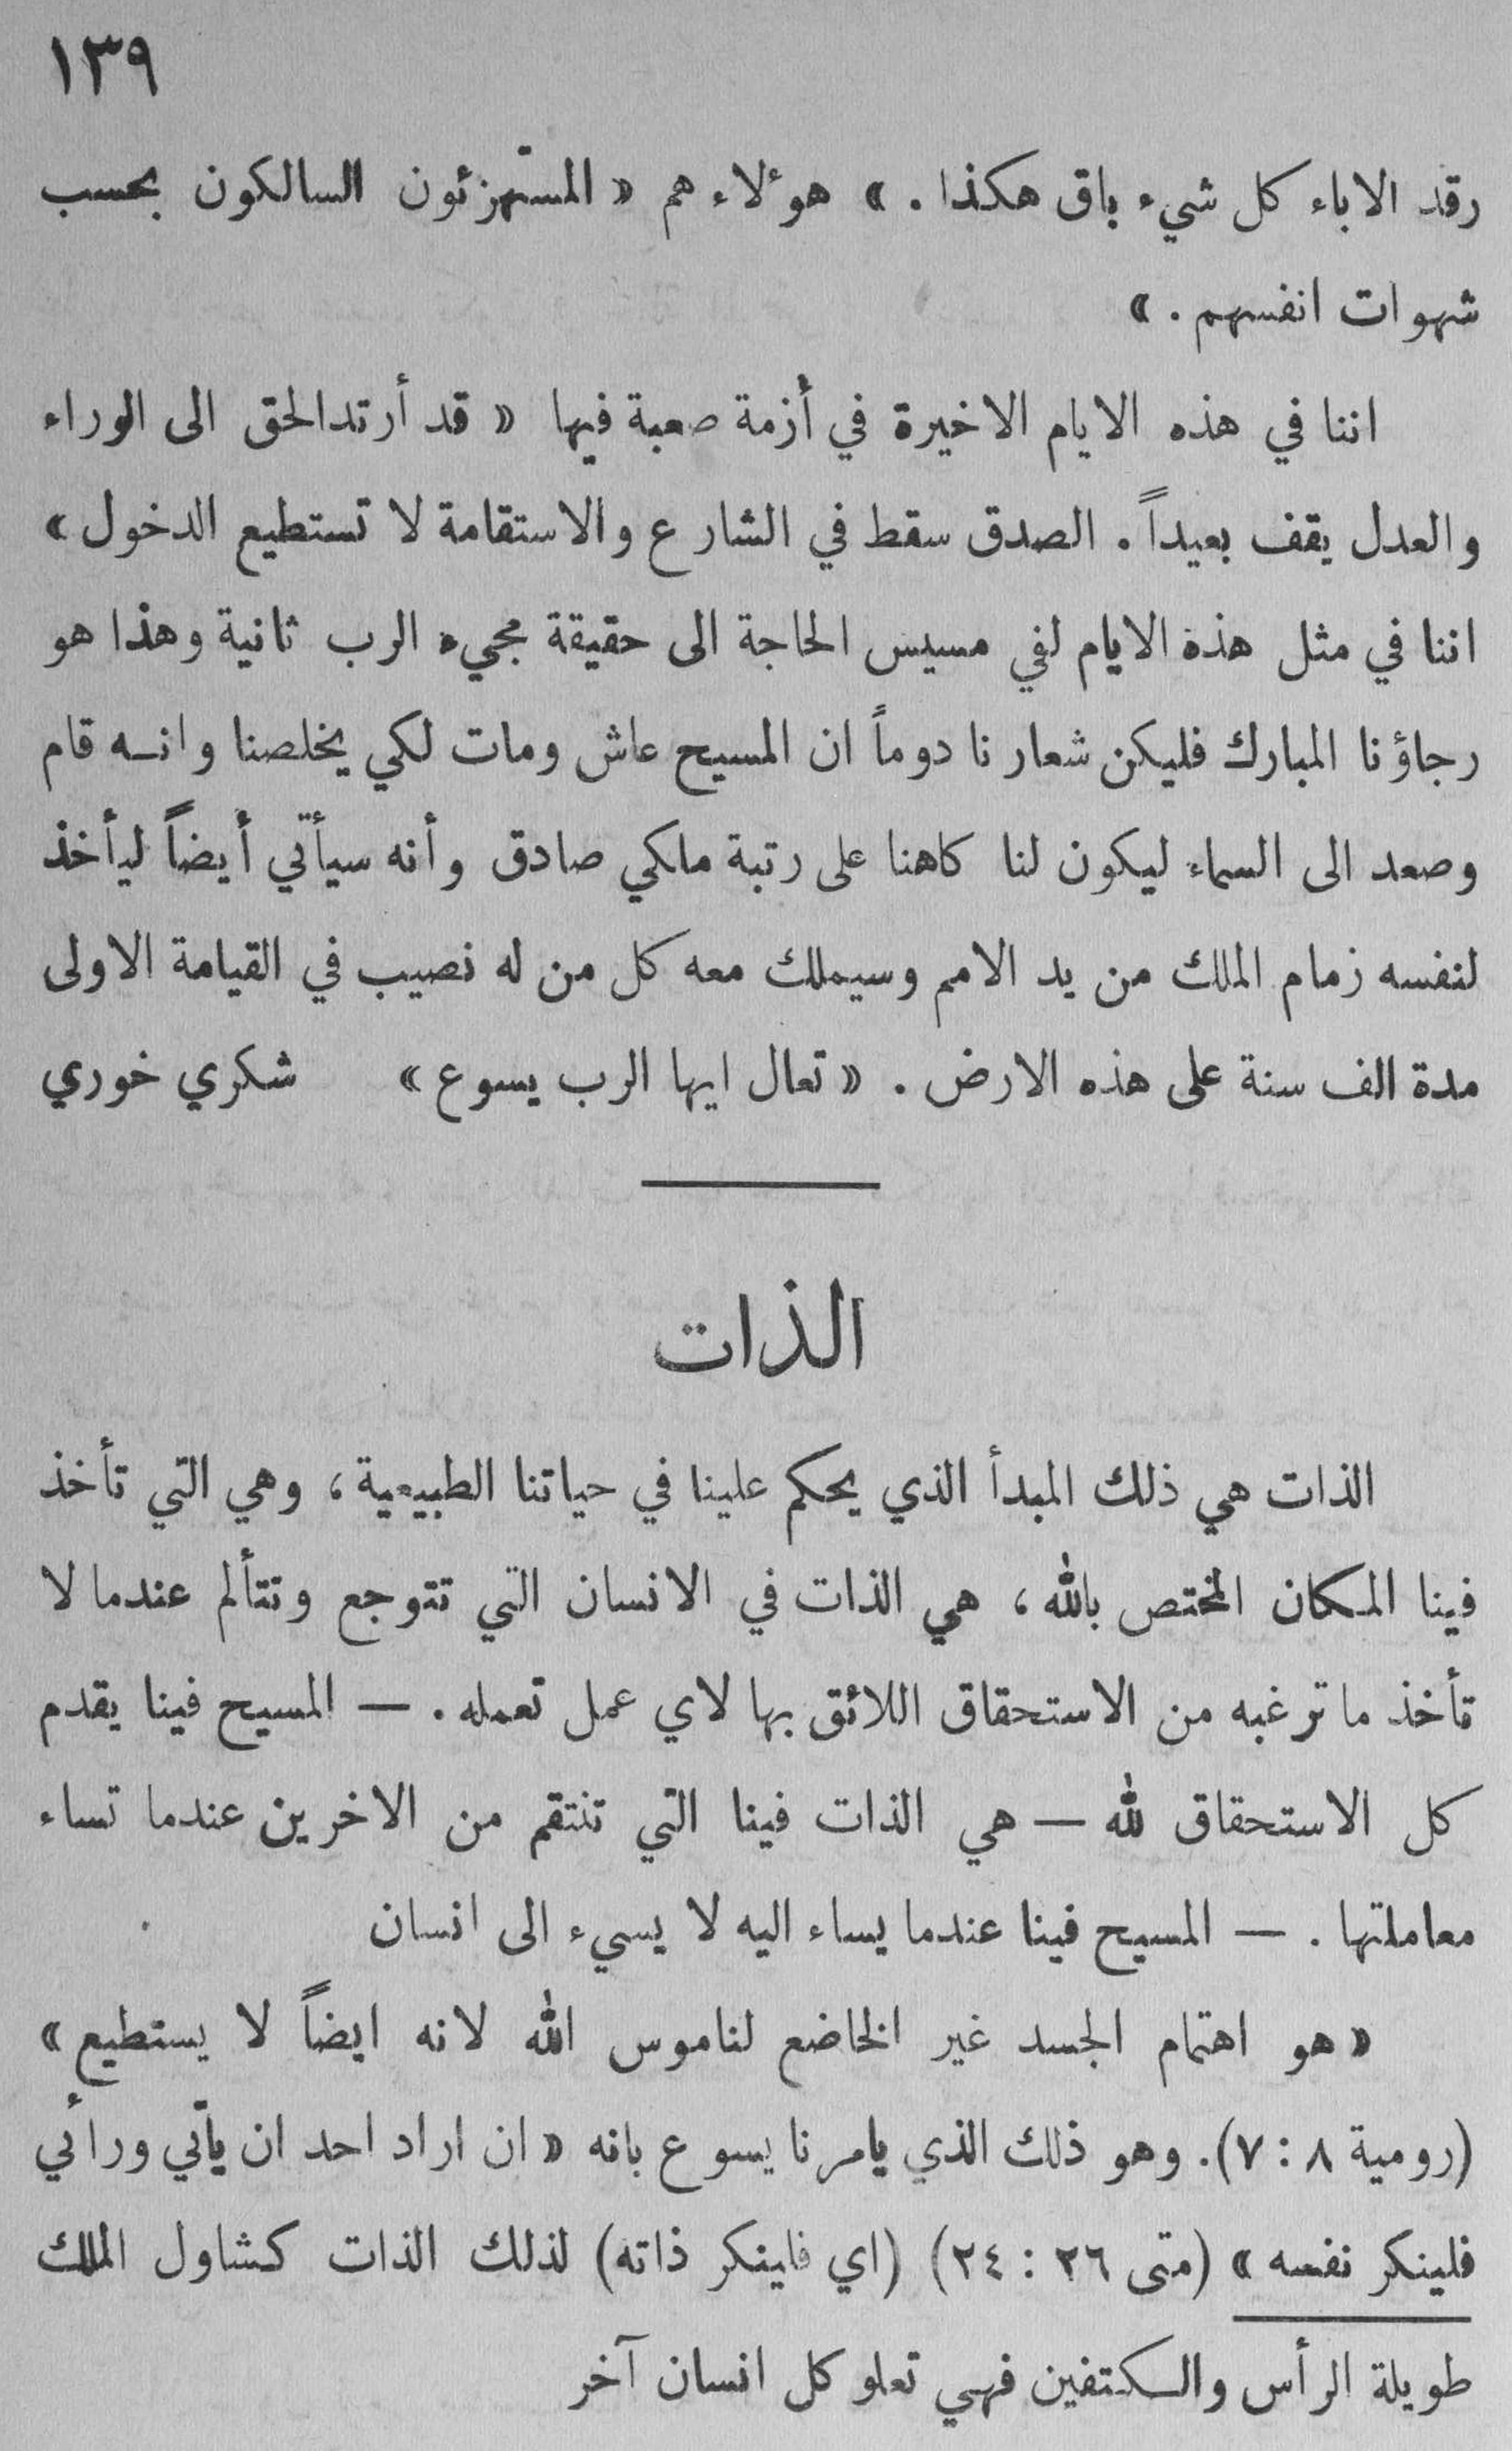 ١٣٩
رقد الاباء كل شيء باق هكذا . » هوٴلاء هم « المستهزئون السالكون بحسب
شهوات انفسهم . »
اننا في هذه الايام الاخيرة في أزمة صعبة فيها « قد أرتدالحق الى الوراء
والعدل يقف بعيداً . الصدق سقط في الشارع والاستقامة لا تستطيع الدخول »
اننا في مثل هذه الايام لفي مسيس الحاجة الى حقيقة مجيء الرب ثانية وهذا هو
رجاؤنا المبارك فليكن شعارنا دوماً ان المسيح عاش ومات لكي يخلصنا وانه قام
وصعد الى السماء ليكون لنا كاهنا على رتبة ملكي صادق وأنه سيأتي أيضاً ليأخذ
لنفسه زمام الملك من يد الامم وسيملك معه كل من له نصيب في القيامة الاولى
مدة الف سنة على هذه الارض . « تعال ايها الرب يسوع » شكري خوري
الذات
الذات هي ذلك المبدأ الذي يحكم علينا في حياتنا الطبيعية ، وهي التي تأخذ
فينا المكان المختص بالله ، هي الذات في الانسان التي تتوجع وتتألم عندما لا
تأخذ ما ترغبه من الاستحقاق اللائق بها لاي عمل تعمله . — المسيح فينا يقدم
كل الاستحقاق لله — هي الذات فينا التي تنتقم من الاخرين عندما تساء
معاملتها . — المسيح فينا عندما يساء اليه لا يسيء الى انسان
« هو اهتمام الجسد غير الخاضع لناموس الله لانه ايضاً لا يستطيع »
(رومية ٨ : ٧). وهو ذلك الذي يامرنا يسوع بانه « ان اراد احد ان يأتي ورائي
فلينكر نفسه » (متى ٢٦ : ٢٤) (اي فلينكر ذاته) لذلك الذات كشاول الملك
طويلة الرأس والكتفين فهي تعلو كل انسان آخر